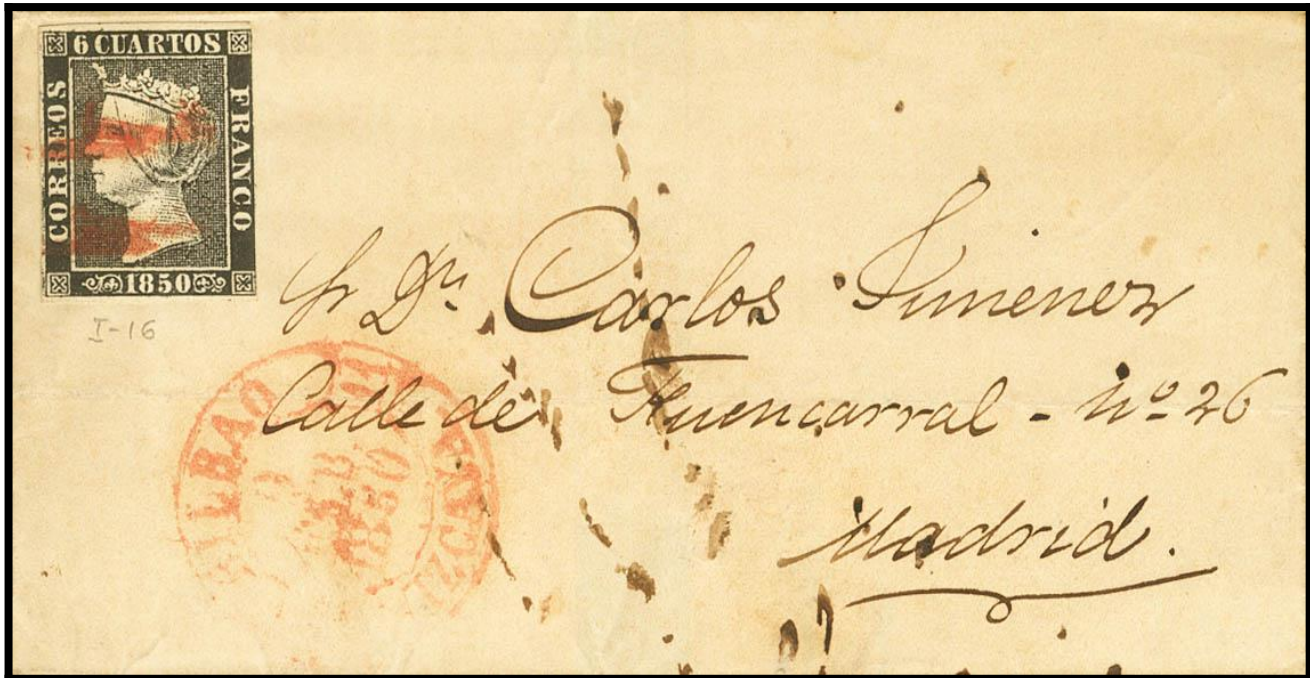 6 CUARTOS
CORREOS
FRANCO
1850
I-16
Sr Dn Carlos Jimenez
Calle de Fuencarral - nº 26
Madrid.
BILBAO
1850